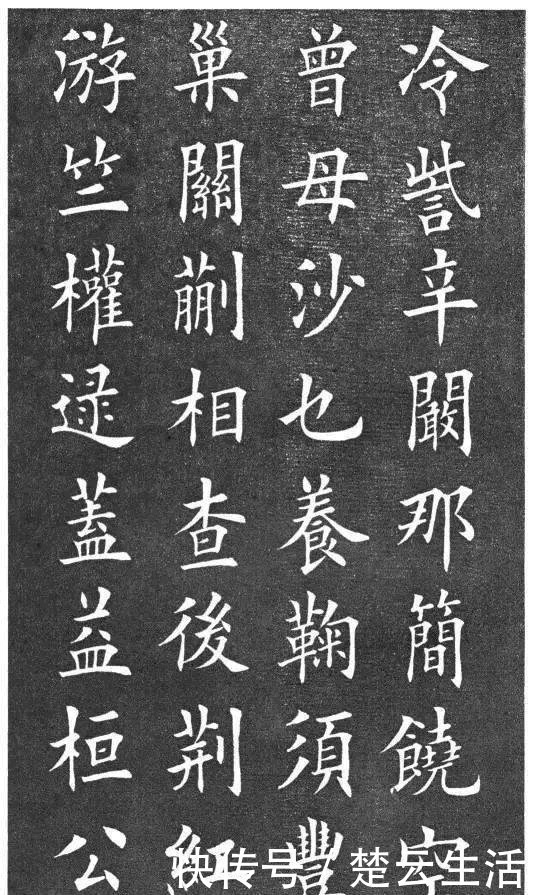 冷訾辛闞那簡饒空
曾母沙乜養鞠須豐
巢關蒯相查後荊紅
游竺權逯蓋益桓公
快传号 / 楚云生活